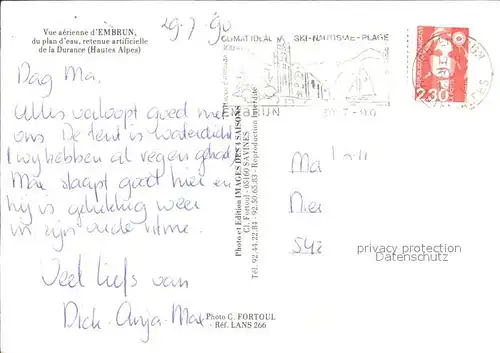 Vue aérienne d'EMBRUN,
du plan d'eau, retenue artificielle
de la Durance (Hautes Alpes)
29-7-90
CLIMAT IDEAL
SKI-NAUTISME-PLAGE
EMBRUN
30-7-90
2,30
Dag Ma.
Alles verloopt goed met
ons. De tent is waterdicht
wij hebben al regen gehad
Max slaapt goed hier en
hij is gelukkig weer
in zijn oude ritme.
Veel liefs van
Dick-Anja-Max
Photo et Edition IMAGES DES 4 SAISONS
Cl. Fortoul - 05160 SAVINES
Tél. 92.44.22.84 - 92.50.65.83 - Reproduction interdite
Photo C. FORTOUL
- Réf. LANS 266
Ma
privacy protection
Datenschutz